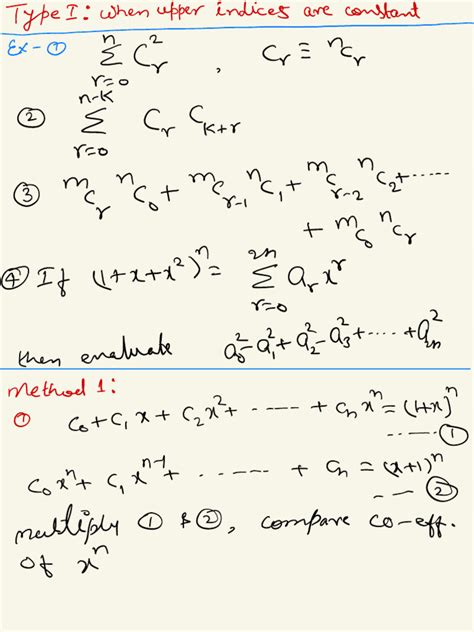 Type I: When upper indices are constant
Ex-① n∑r=0 C²r , Cr ≡ ⁿCr
② n-k∑r=0 Cr Ck+r
③ ᵐCr ⁿC0 + ᵐCr-1 ⁿC1 + ᵐCr-2 ⁿC2 + ......
+ ᵐC0 ⁿCr
④ If (1+x+x²)ⁿ = 2n∑r=0 ar xʳ
then evaluate a0² - a1² + a2² - a3² + .... + a2n²
Method 1:
① C0 + C1 x + C2 x² + ...... + Cn xⁿ = (1+x)ⁿ
...... ①
C0 xⁿ + C1 xⁿ⁻¹ + ...... + Cn = (x+1)ⁿ
... ②
multiply ① & ②, compare co-eff.
of xⁿ